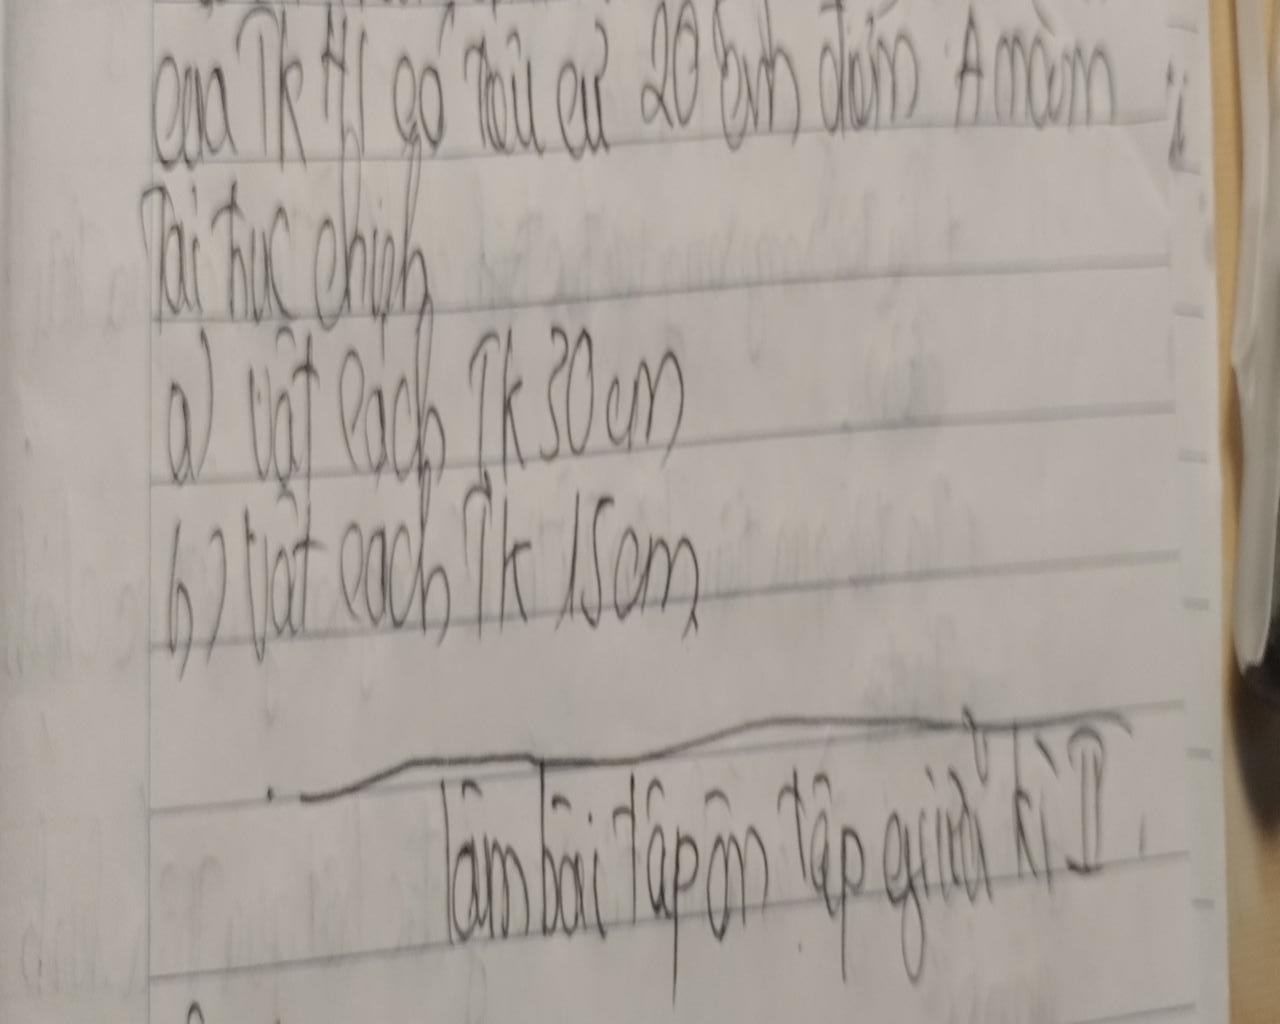 của Tk Hị có tiêu cự 20 cm điểm A nằm
Tại trục chính
a) Vật cách Tk 30 cm
b) Vật cách Tk 15 cm
làm bài tập ôn tập giữa kì II